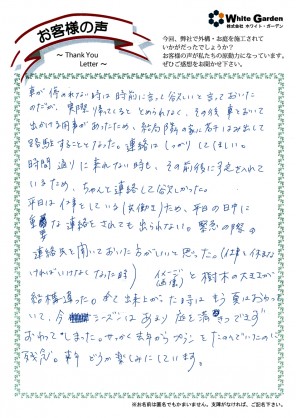 お客様の声
～ Thank You
Letter ～
White Garden
株式会社 ホワイト・ガーデン
今回、弊社で外構・お庭を施工されて
いかがだったでしょうか？
お客様の声が私たちの原動力になっています。
ぜひご感想をお聞かせ下さい。
車が停められない時は時前に言って欲しいと言っておいた
のだが、実際帰ってくるととめられなく、その後、車で
出かける用事があったため、結局隣の家に若干はみ出して
路駐することとなった。連絡はしっかりしてほしい。
時間通りに来れない時も、その前後に予定されて
いるため、ちゃんと連絡して欲しかった。
平日は仕事をしている(共働き)ため、平日の日中に
重要な連絡をされても出られない。緊急の際の
連絡先を聞いておいた方がいいと思った。(仕事を休まな
ければいけなくなった時) イメージ(画像) と樹木の大きさが
結構違った。
出来上がった時は もう夏はおわって
いて、今シーズンは あまり庭を満きつできず
おわってしまった。せっかく去年からプランをたのんでいたのに
残念。来年 どうか楽しみにしています。
※お名前は匿名でもかまいません。支障がなければ、ご記名下さい。